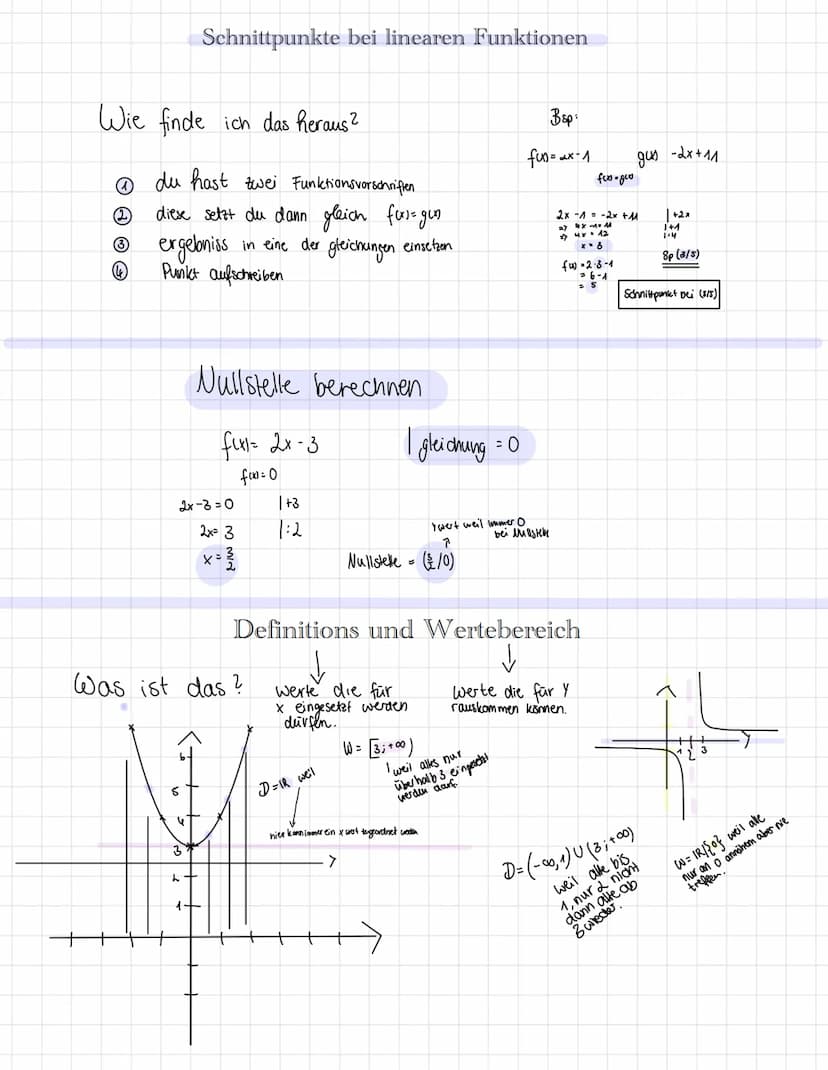 Schnittpunkte bei linearen Funktionen
Wie finde ich das heraus?
① du hast zwei Funktionsvorschriften
② diese setzt du dann gleich f(x)=g(x)
③ ergebniss in eine der gleichungen einsetzen
④ Punkt aufschreiben
Bsp:
f(x)=2x-1 g(x) -2x+11
f(x)=g(x)
2x-1 = -2x+11 |+2x
=) 4x-1=11 |+1
=) 4x=12 |:4
x=3
Sp(3/5)
f(x)=2·3-1
=6-1
=5
Schnittpunkt bei (3/5)
Nullstelle berechnen
f(x)= 2x-3 | gleichung = 0
f(x)=0
2x-3=0 |+3
2x= 3 |:2
x= 3/2
Ywert weil immer 0
bei Nullstelle
Nullstelle = (/0)
Definitions und Wertebereich
Was ist das?
werte die für
x eingesetzt werden
dürfen.
Werte die für Y
rauskommen können.
W= [3;+∞)
weil alles nur
überhalb 3 eingesetzt
werden darf.
D=IR weil
hier kann immer ein x wert zugeordnet werden
6
5
4
3
2
1
1 2 3
D=(-∞,1)U(3;+∞)
weil alle bis
1, nur 2 nicht
dann alle ab
3 wieder.
W=IR/{0} weil alle
nur an 0 annähern aber nie
treffen.